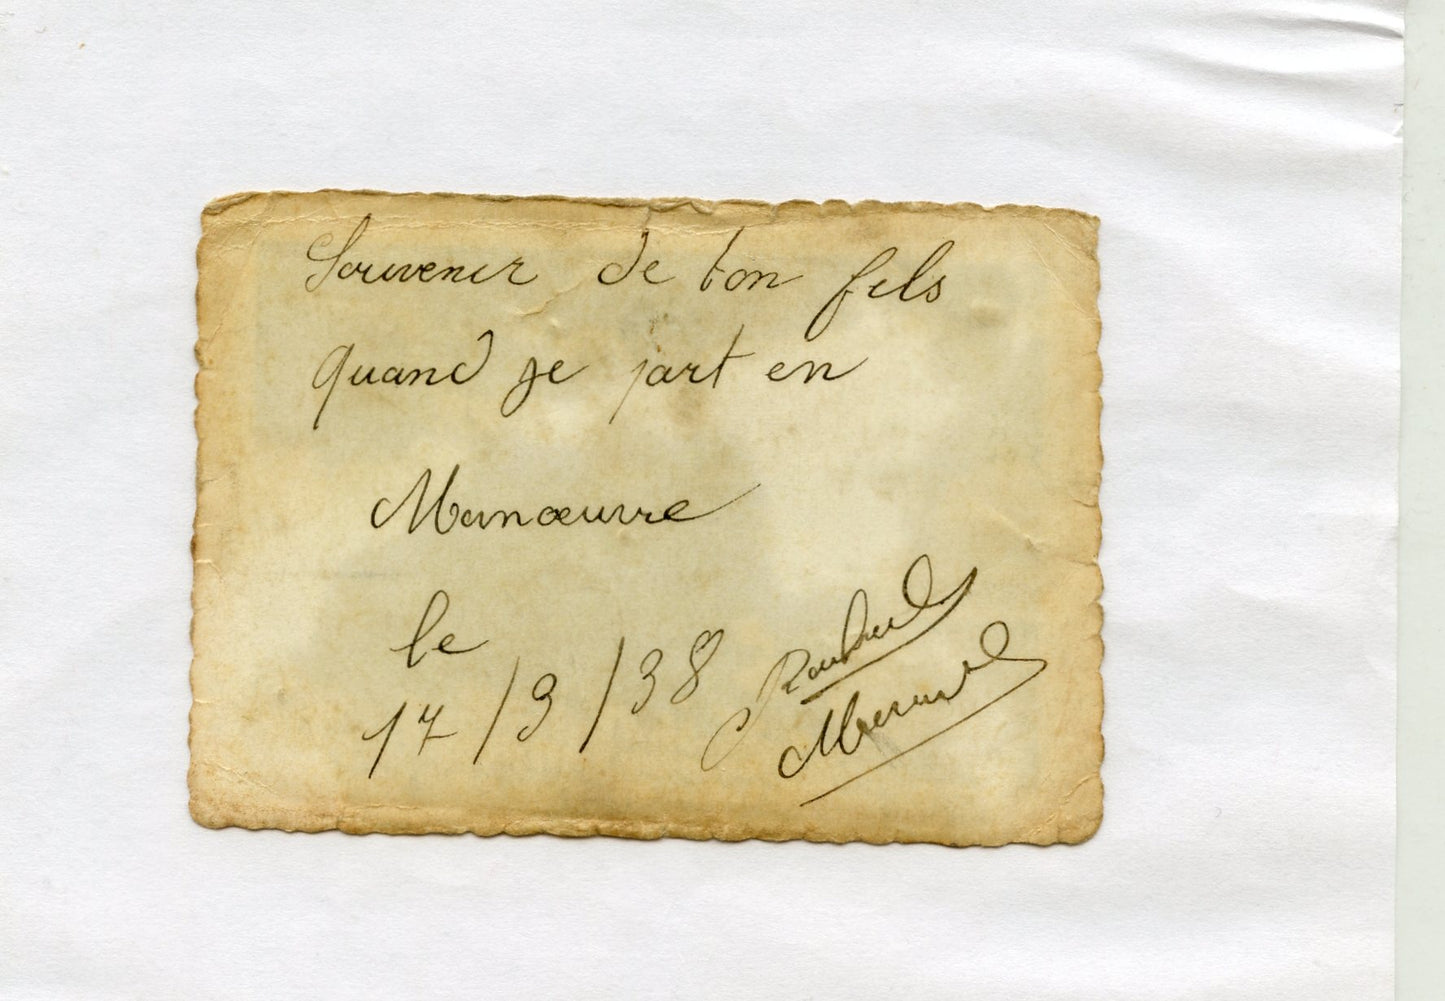 Souvenir de ton fils
quand je part en
Manœuvre
le
17/3/38